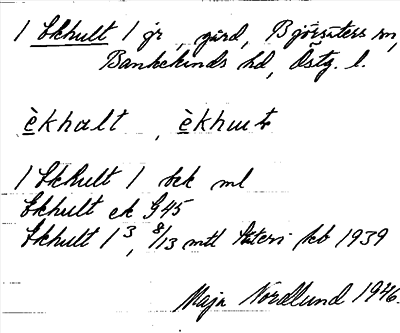 1 Ekhult 1 gr, gård, Björsäters sn,
Bankekinds hd, Östg. l.
èkhalt, èkhut
1 Ekhult 1 sek ml
Ekhult ek G 45
Ekhult 1 3, 8/13 mtl Säters kb 1939
Maja Nordlund 1946.